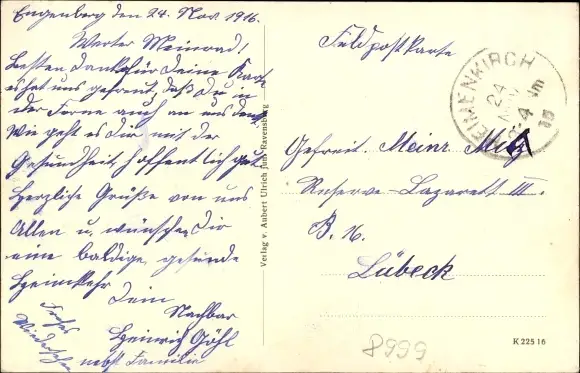 Engenberg den 24. Nov. 1916.
Werter Meinrad!
Besten Dank für Deine Karte
es hat uns gefreut, daß Du in
der Ferne auch an uns denkst
Wie geht es Dir mit der
Gesundheit, hoffentlich gut
Herzliche Grüße von uns
Allen u. wünschen Dir
eine baldige gesunde
Heimkehr
Dein
Nachbar
Heinrich Göhl
nebst Familie
Frohes
Wiedersehen
Verlag v. Aubert Ulrich jun. Ravensburg
Feldpostkarte
HEIMENKIRCH
24
NOV
3-4 Nm
16
Gefreit. Meinr.
Reserve-Lazarett III.
B. 16.
Lübeck
8999
K 225 16